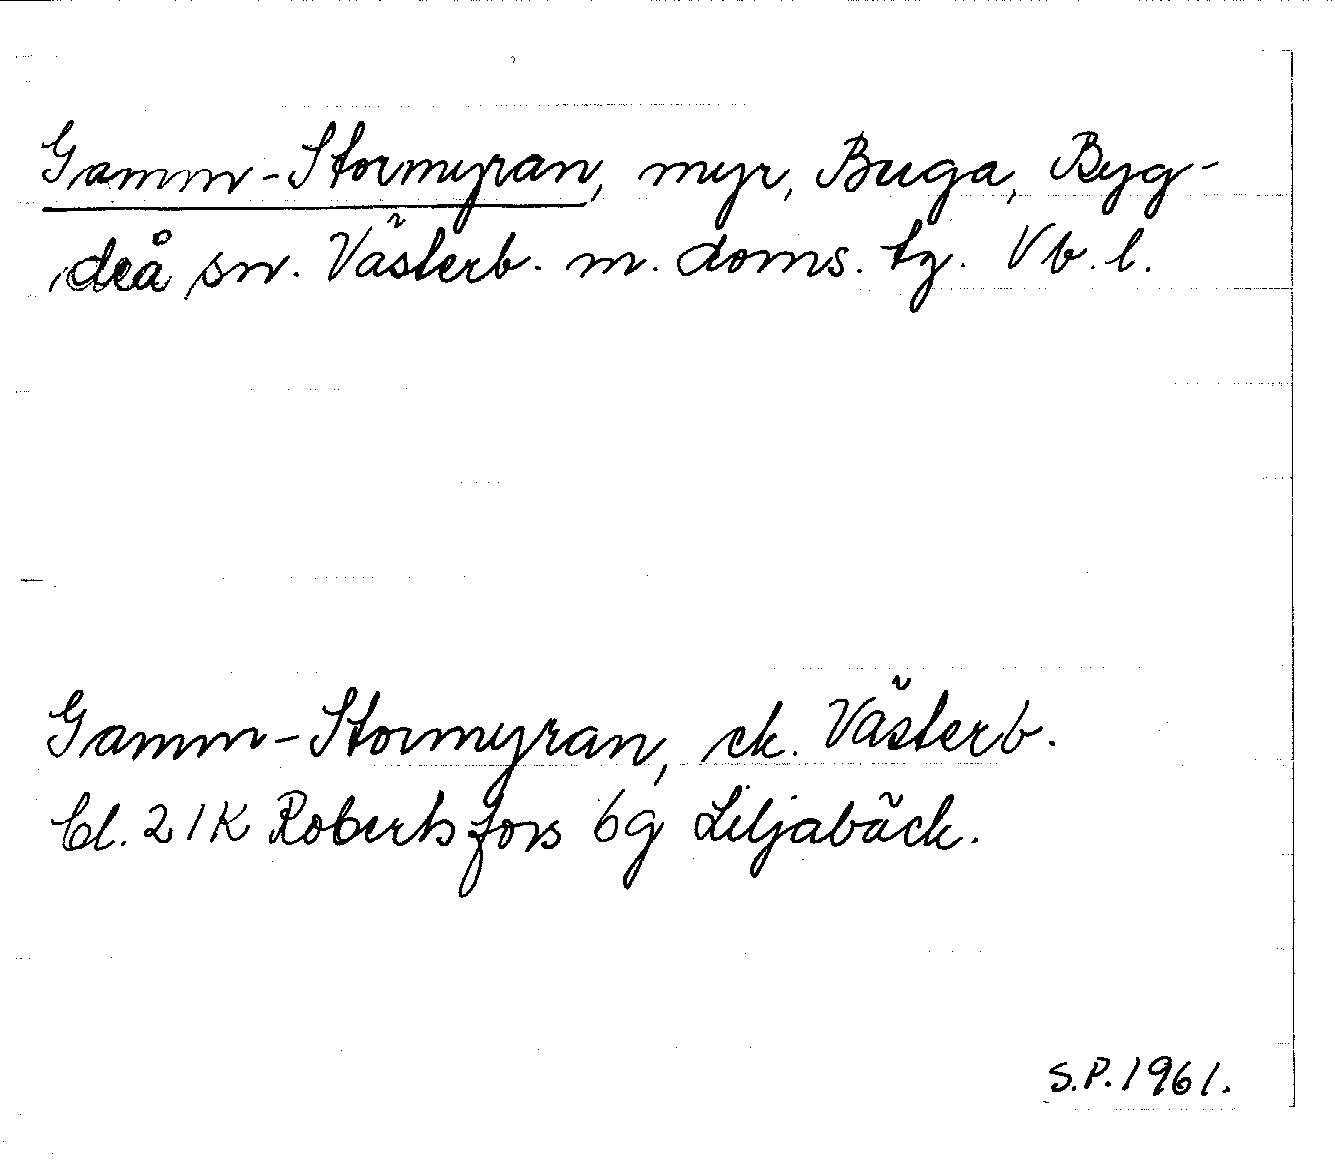 Gamm-Stormyran, myr, Buga, Byg-
deå sn. Västerb. m. doms. tg. Vb. l.
Gamm-Stormyran, ek. Västerb.
bl. 21K Robertsfors 6g Liljabäck.
S.P. 1961.